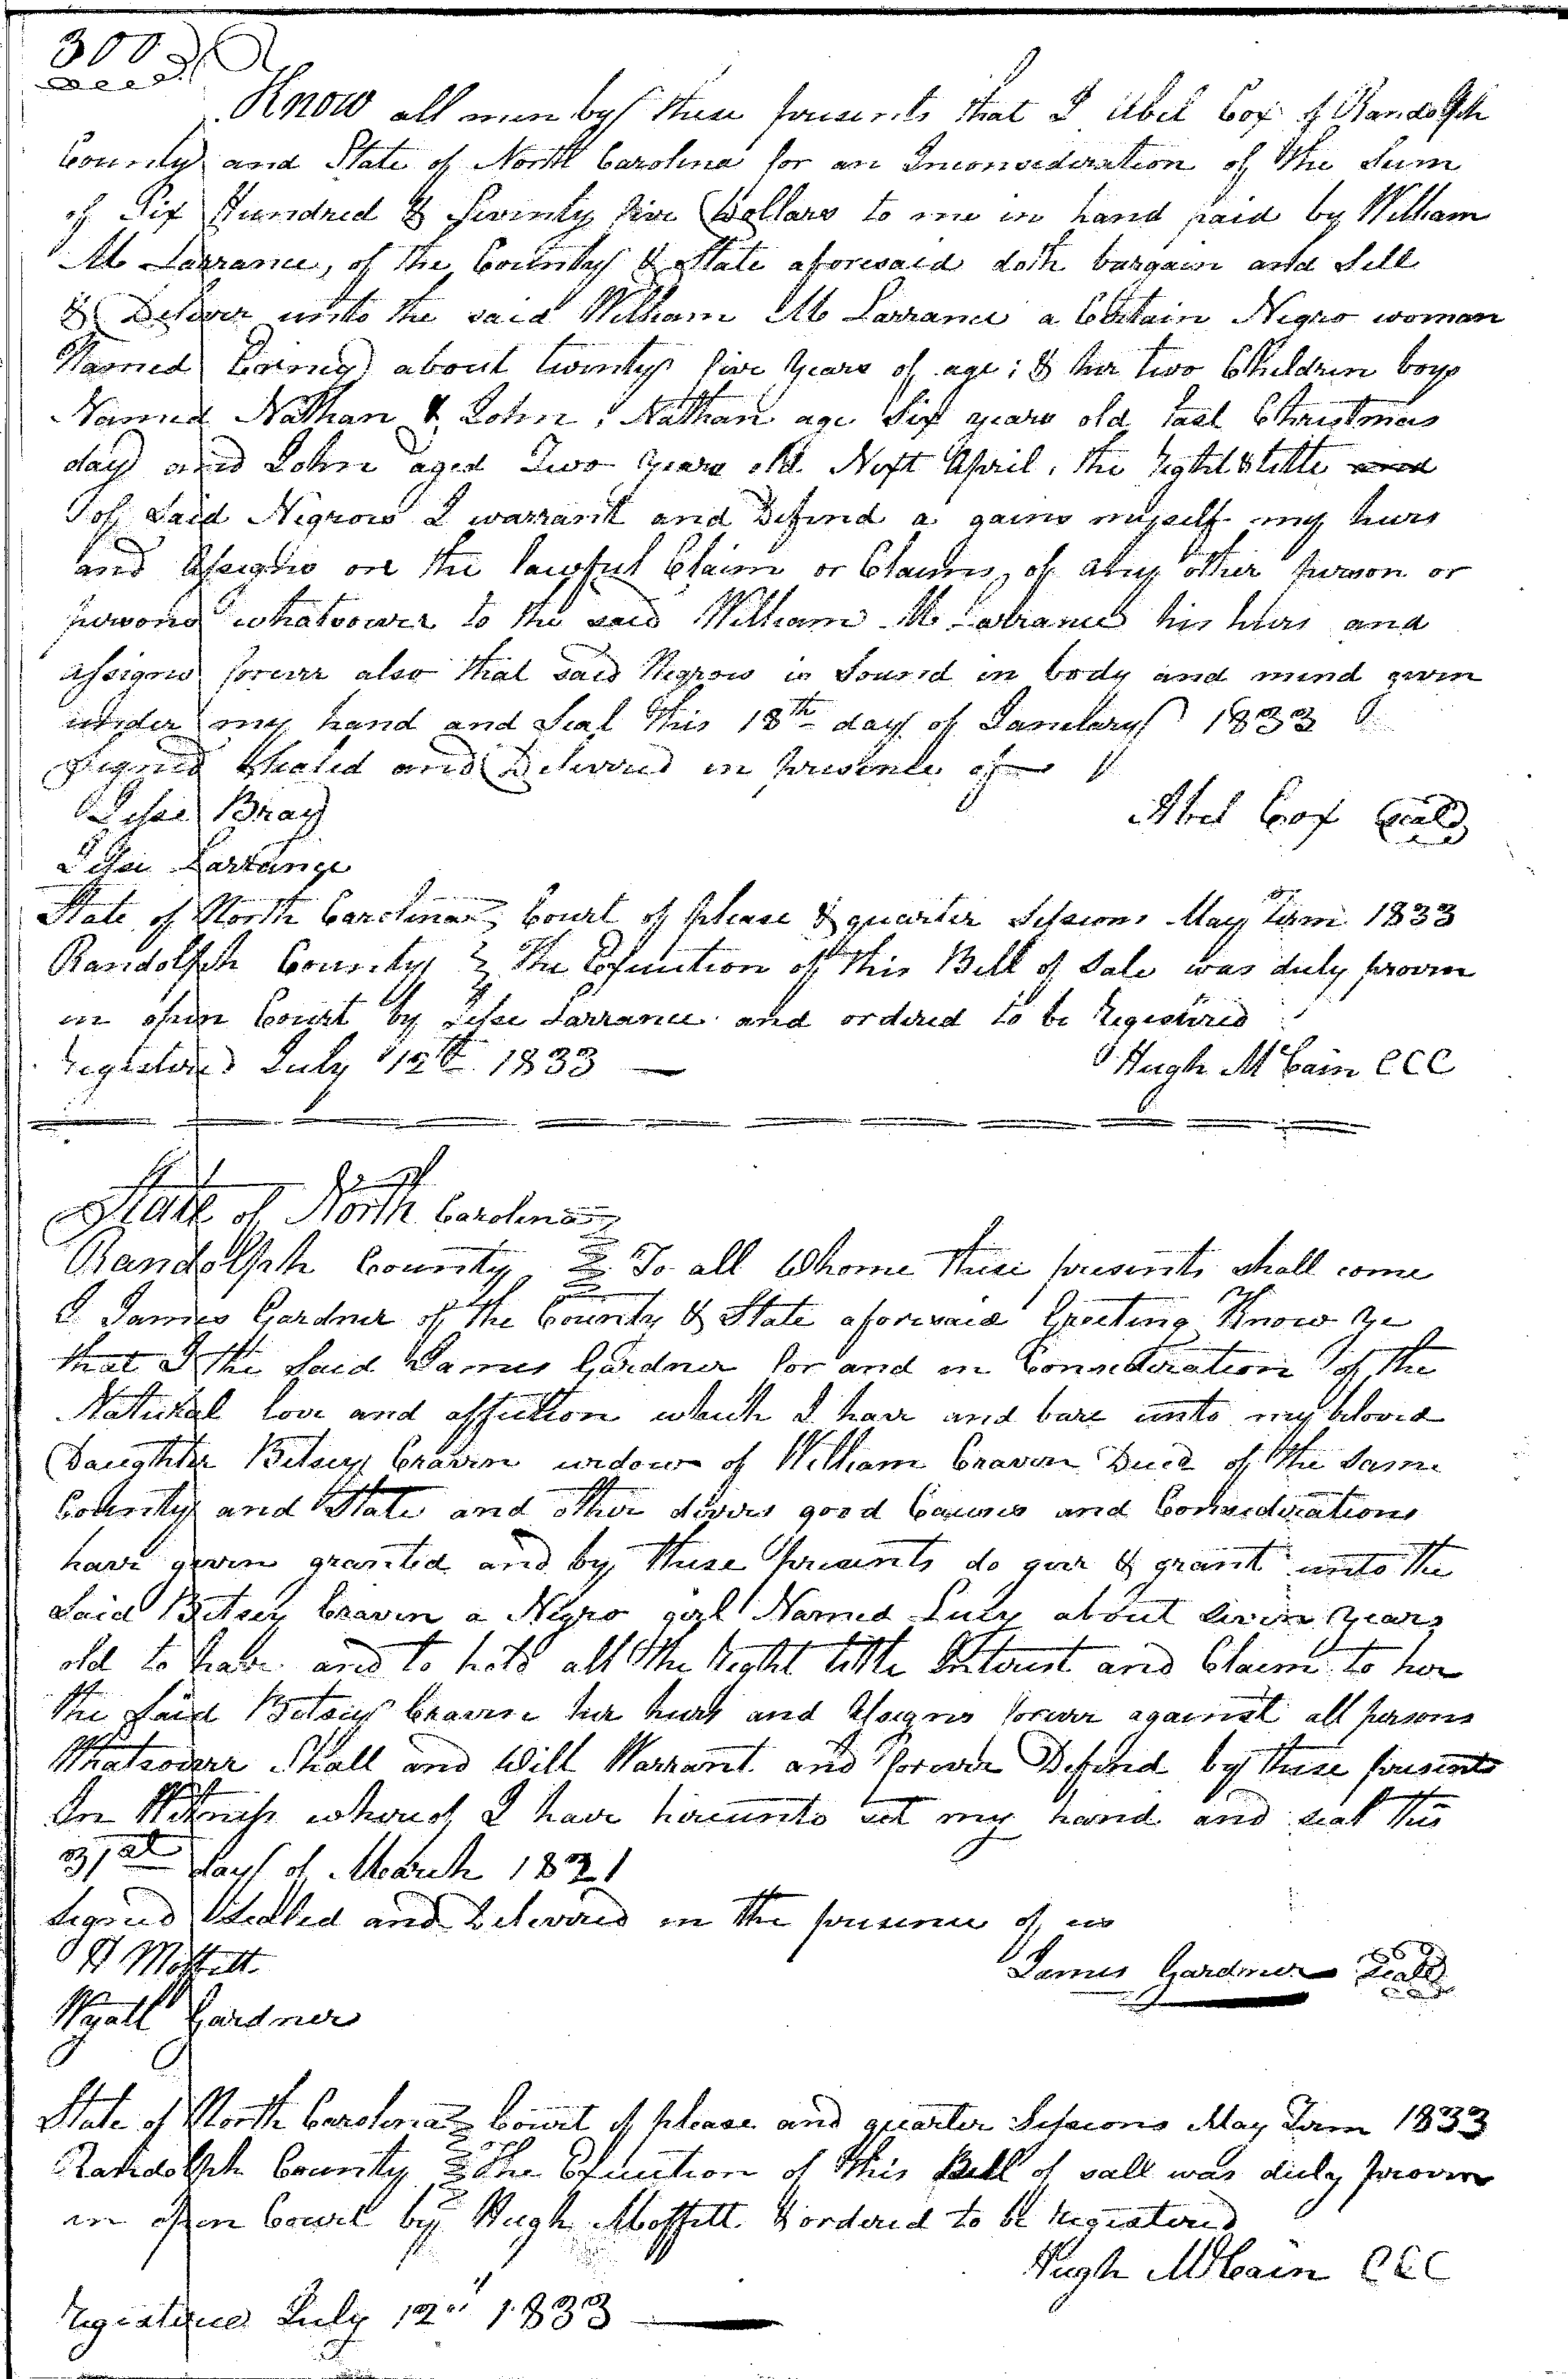 300
Know all men by these presents that I Abel Cox of Randolph
County and State of North Carolina for an Inconsideration of the Sum
of Six Hundred & Seventy five Dollars to me in hand paid by William
M Larrance, of the County & State aforesaid doth bargain and Sell
& Deliver unto the said William M Larrance a Certain Negro woman
Named about twenty five years of age; & her two Children boys
Named Nathan & John; Nathan age Six years old last Christmas
day and John aged Two years old Next April, the right & title
of Said Negrows I warrant and Defend a gains myself my heirs
and Assigns ore the lawful Claim or Claims of any other person or
persons whatsoever to the said William M Larrance his heirs and
assigns forever also that said Negrow is Sound in body and mind given
under my hand and Seal this 18th day of January 1833
Signed Sealed and Deliverd in presence of
Jesse Bray
Abel Cox Seal
Jesse Larrance
State of North Carolina Court of please & quarter Sessions May Term 1833
Randolph County The Execution of this Bill of Sale was duly proven
in open Court by Jesse Larrance and ordered to be Registered
registered July 12th 1833
Hugh McCain CCC
State of North Carolina
Randolph County To all Whome these presents shall come
I James Gardner of the County & State aforesaid Greeting Know ye
that I the Said James Gardner for and in Consideration of the
Natural love and affection which I have and bare unto my beloved
Daughter Betsey Craven widow of William Craven Decd of the Same
County and State and other divers good Causes and Considerations
have given granted and by these presents do give & grant unto the
Said Betsey Craven a Negro girl Named Lucy about years
old to have and to hold all the Right title Interest and Claim to her
the Said Betsey Craven her heirs and Assigns forever against all persons
Whatsoever Shall and Will Warrant and forever Defend by these presents
In Witness whereof I have hereunto set my hand and seal this
31st day of March 1821
Signed Sealed and Deliverd in the presence of us
H Moffitt
James Gardner Seal
Wyatt Gardner
State of North Carolina Court of please and quarter Sessions May Term 1833
Randolph County The Execution of this Bill of sall was duly proven
in open Court by Hugh Moffitt & orderd to be registerd
Hugh McCain CCC
registered July 12th 1833